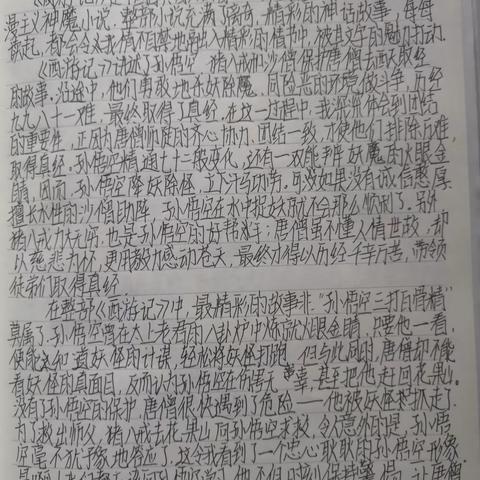 漫主义神魔小说。整部小说充满了离奇、精彩的神话故事，每每
读起，都会令我情不自禁地融入精彩的情节中，被其文笔的魅力打动。
《西游记》讲述了孙悟空、猪八戒和沙僧保护唐僧去西天取经
的故事。沿途中，他们勇敢地杀妖除魔，同险恶的环境做斗争，历经
九九八十一难，最终取得了真经。在这一过程中，我深深体会到团结
的重要性，正因为唐僧师徒的齐心协力、团结一致，才使他们排除万难，
取得真经。孙悟空精通七十二般变化，还有一双能辨妖魔的火眼金
睛，因而，孙悟空降妖除怪，立下汗马功劳。可没如果没有诚信憨厚、
擅长水性的沙僧助阵，孙悟空在水中捉妖就不会那么顺利了。另外
猪八戒力大无穷，也是孙悟空的好帮手；唐僧虽不懂人情世故，却
以慈悲为怀，更用毅力感动苍天，最终才得以历经千辛万苦，带领
徒弟们取得真经。
在整部《西游记》中，最精彩的故事非“孙悟空三打白骨精”
莫属了。孙悟空曾在太上老君的八卦炉中炼就火眼金睛，只要他一看，
便能知道妖怪的计谋，轻松将妖怪打跑。但与此同时，唐僧却不能
看妖怪的真面目，反而认为孙悟空在伤害无辜，甚至把他赶回花果山。
没有了孙悟空的保护，唐僧很快遇到了危险——他被妖怪抓走了。
为了救出师父，猪八戒去花果山向孙悟空求救，令人意外的是，孙悟
空毫不犹豫地答应了。这令我看到了一个忠心耿耿的孙悟空形象。